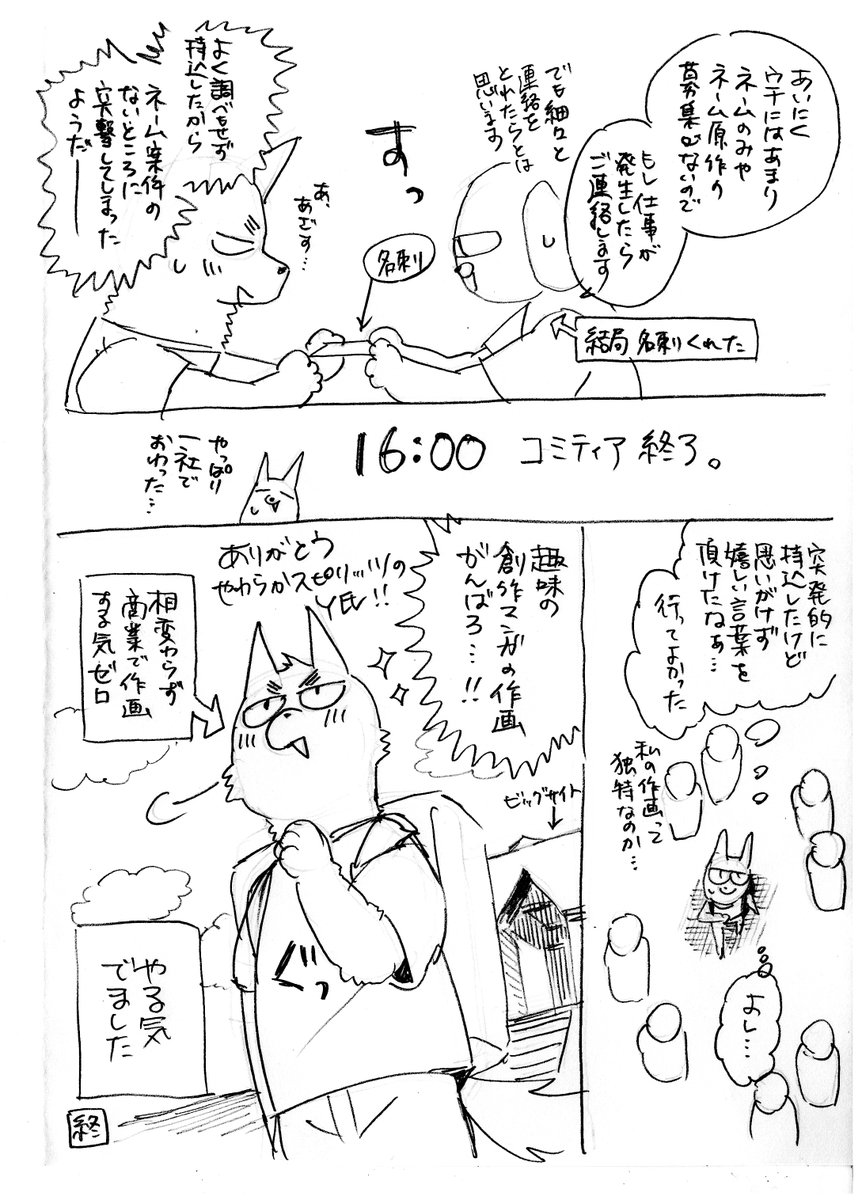 あいにく
ウチにはあまり
ネームのみや
ネーム原作の
募集がないので
もし仕事が
発生したら
ご連絡します
でも細々と
連絡を
とれたらとは
思います
すっ
名刺
結局名刺くれた
あ、
あざす…
よく調べもせず
持込したから
ネーム案件の
ないところに
突撃してしまった
ようだ――
16:00 コミティア終了。
やっぱり
一社で
おわった…
突発的に
持込したけど
思いがけず
嬉しい言葉を
頂けたなぁ…
行ってよかった
私の作画って
独特なのか…
よし…
趣味の
創作マンガの作画
がんばろ…!!
ありがとう
やわらかスピリッツの
Y氏!!
相変わらず
商業で作画
する気ゼロ
ビッグサイト
ぐっ
やる気
でました
終